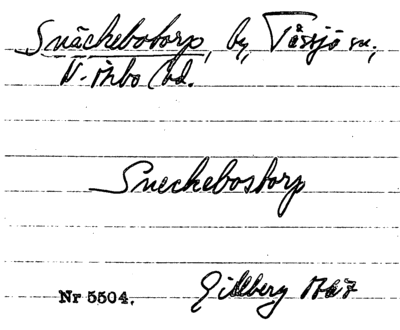 Snäckebotorp, by, Tåssjö sn,
N. Åsbo hd.
Sneckebostorp
Gillberg 1767
Nr 5504.